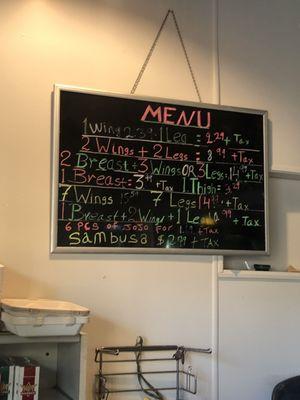 MENU
1 Wing 2.39. 1 Leg = 2.29 + Tax
2 Wings + 2 Legs = 8.99 + Tax
2 Breast + 3 Wings OR 3 Legs = 14 + Tax
1 Breast = 3 + Tax 1 Thigh = 3.29
7 Wings 15 7 Legs 14 + Tax
1 Breast + 2 Wing + 1 Leg + Tax
6 PCS OF JOJO FOR + TAX
Sambusa $2.79 + TAX